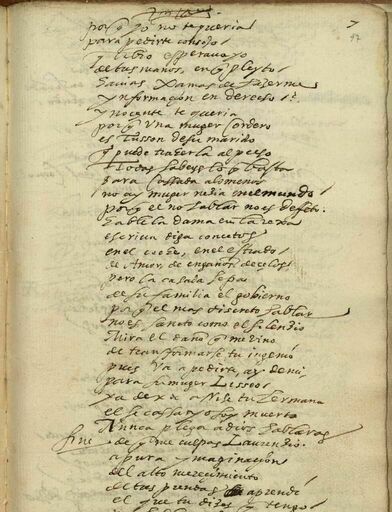 porq̃ yo no te queria
para pedirte consejo
q̃ libro esperava yo
de tus manos, en q̃ pleytos
havias
informaçion en derecho
ynocente te queria
porq̃ una muger cordero
es tusson de su marido
q̃ puede traerla al pecho
todas sabeys lo q̃ basta
para casada alomenos
no ay muger neçia en el mundo
porq̃ el no hablar no es defeto
hable la dama en la rexa
escriva diga concetos
en el coche, en el estrado
de Amor, de engaños de çelos
pero la casada sepa
de su familia el gobierno
porq̃ el mas discreto hablar
no es sancto como el silençio
Mira el daño q̃ me vino
de transformarse tu ingenio
pues va a pedir, ay de mi
para su muger Liseo
ya dexa a Nise tu hermana
el se cassa yo soy muerto
Nunca plega a dios hablaras
fine
de q̃ me culpas Laurençio
a pura ymaginaçion
del alto mereçimiento
de tas prendas aprendi
el que tu dizes q̃ tengo